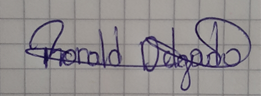 Ronald Delgado